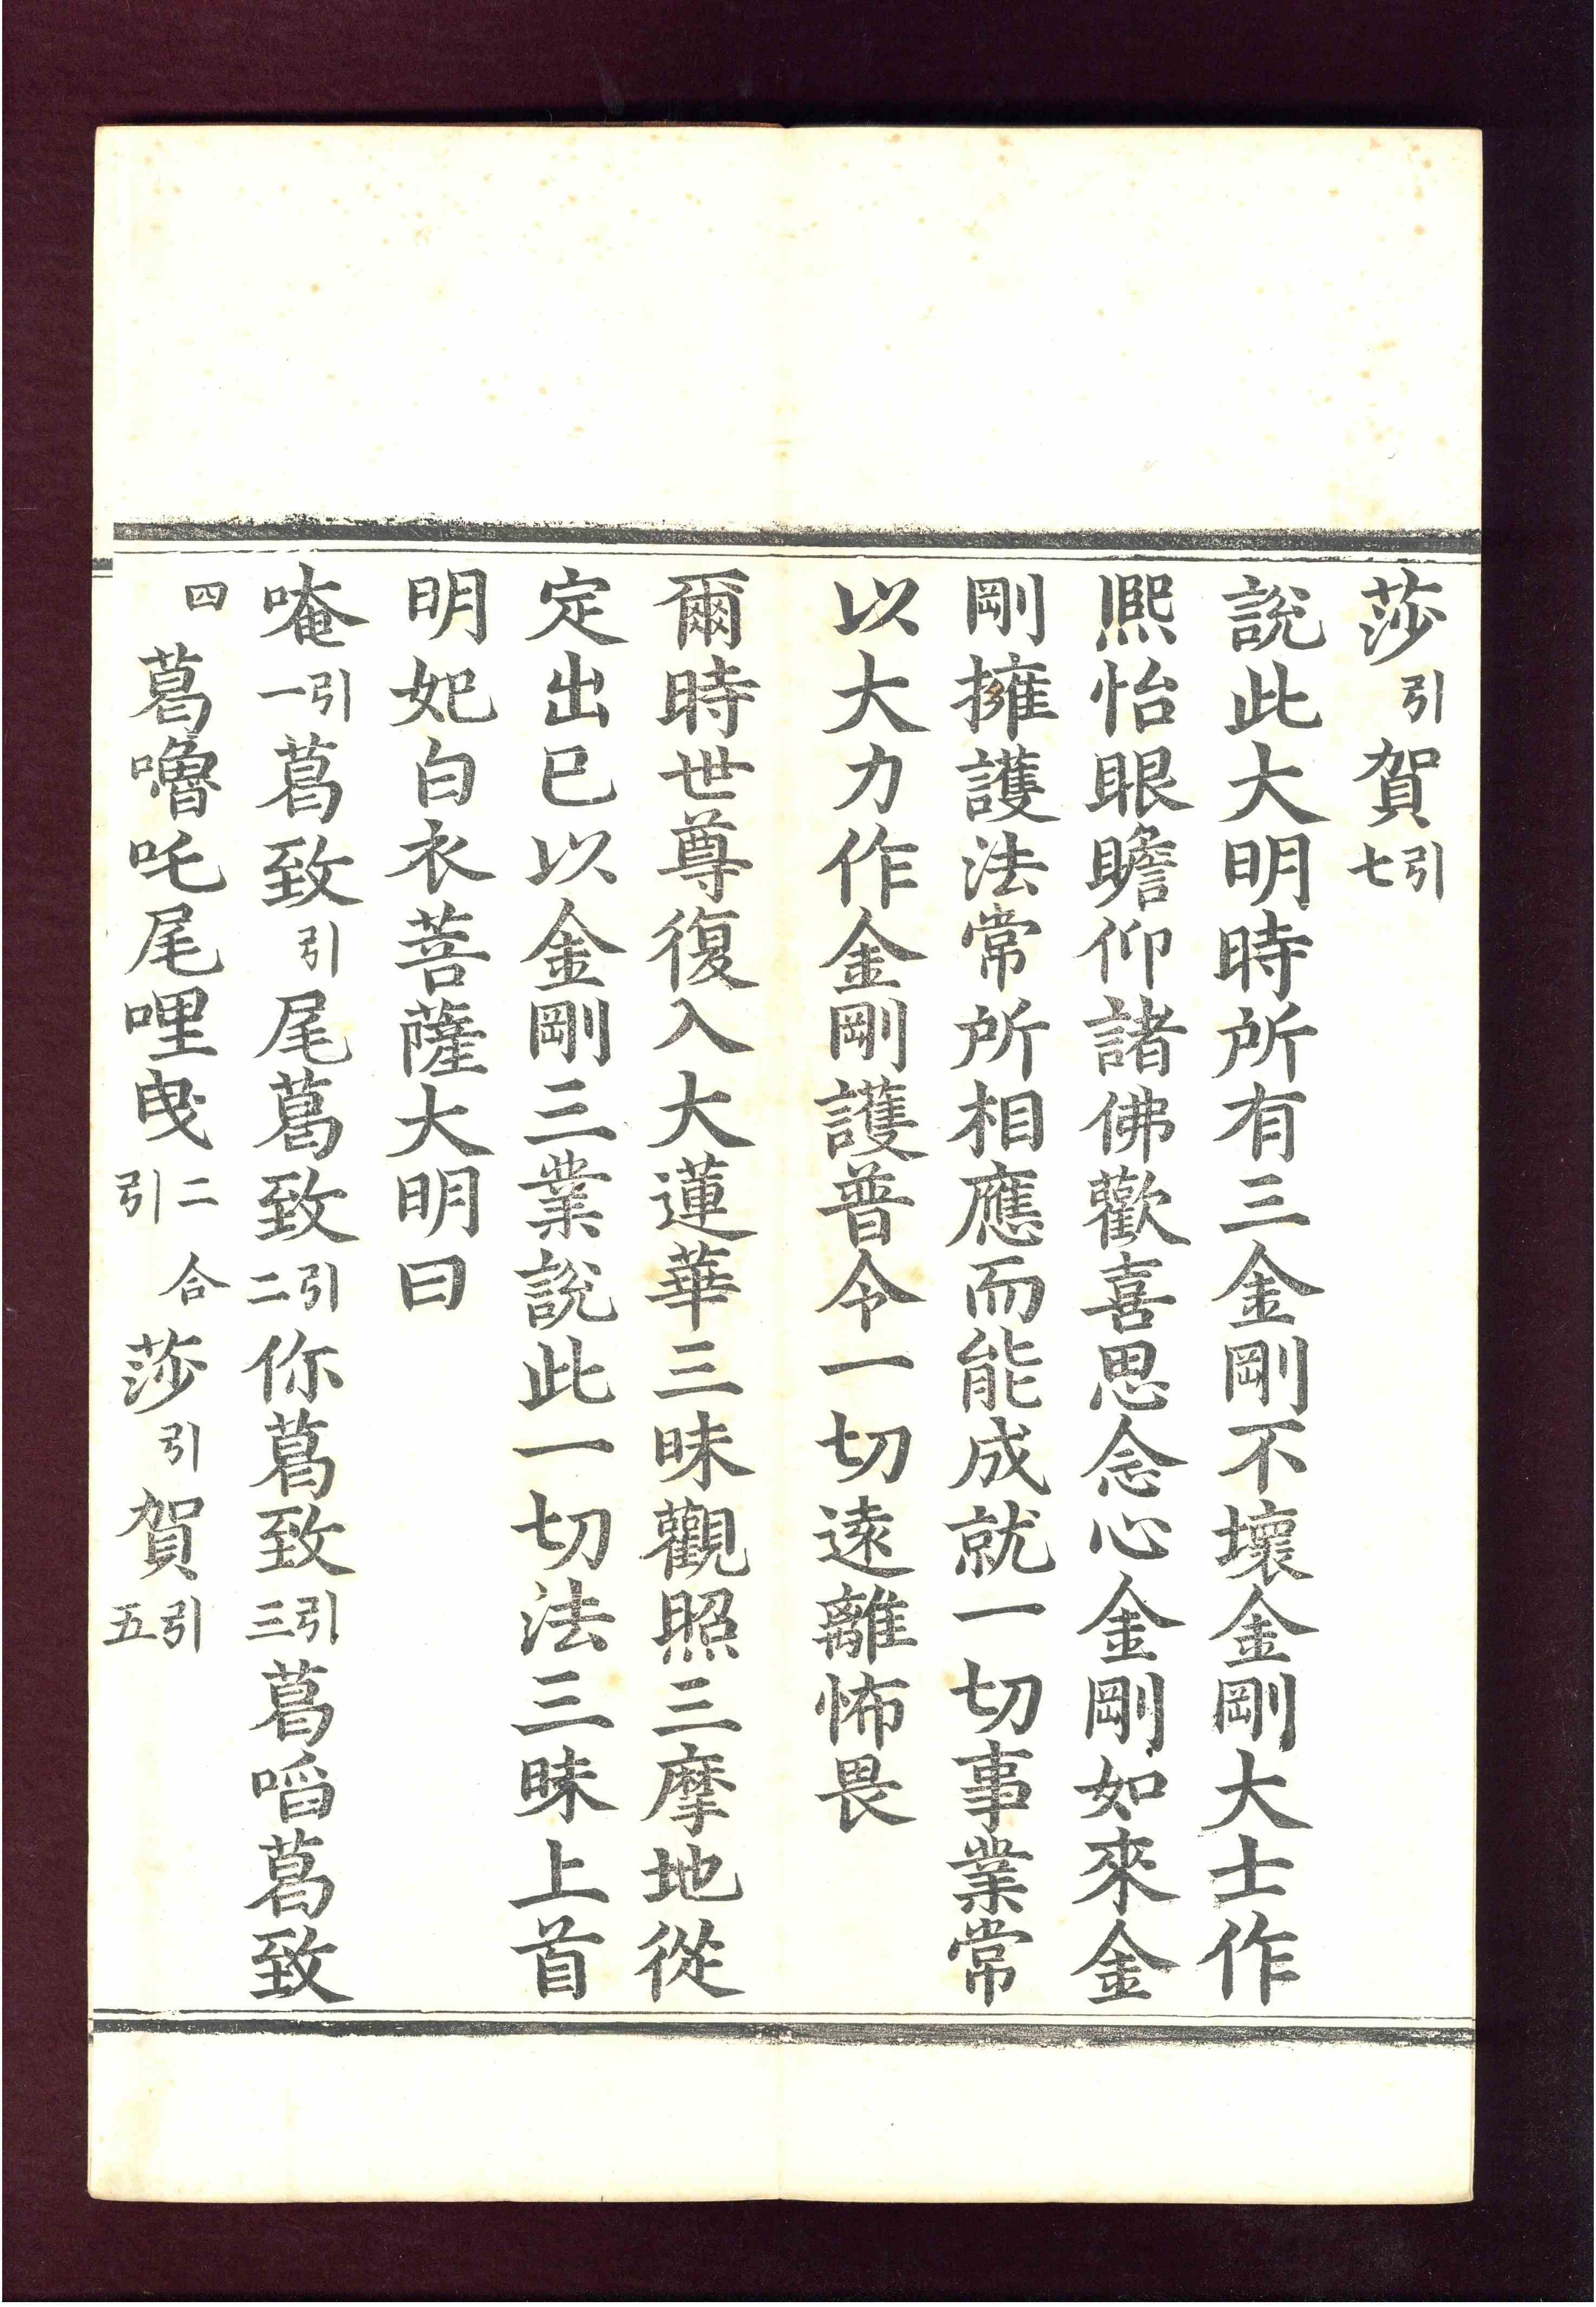 莎引賀引七
說此大明時所有三金剛不壞金剛大士作
熈怡眼瞻仰諸佛歡喜思念心金剛如來金
剛擁護法常所相應而能成就一切事業常
以大力作金剛護普令一切遠離怖畏
爾時世尊復入大蓮華三昧觀照三摩地從
定出已以金剛三業說此一切法三昧上首
明妃白衣菩薩大明曰
唵引一葛致引尾葛致引二你葛致引三葛㗖葛致
四葛嚕吒尾哩曳二合引莎引賀引五